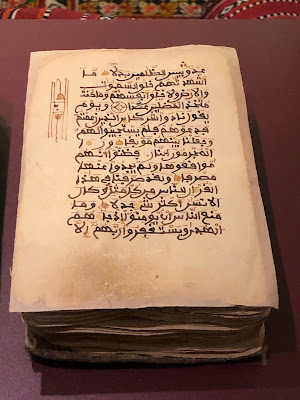 عدو بيس للظلمين بدلا ما
اشهدتهم خلق السموت
والارض ولا خلق انفسهم وما كنت
متخذ المضلين عضدا ويوم
يقول نادوا شركاءى الذين زعمتم
فدعوهم فلم يستجيبوا لهم
وجعلنا بينهم موبقا ورءا
المجرمون النار فظنوا انهم
مواقعوها ولم يجدوا عنها
مصرفا ولقد صرفنا في هذا
القرءان للناس من كل مثل وكان
الانسن اكثر شيء جدلا وما
منع الناس ان يومنوا اذ جاءهم
الهدى ويستغفروا ربهم الا